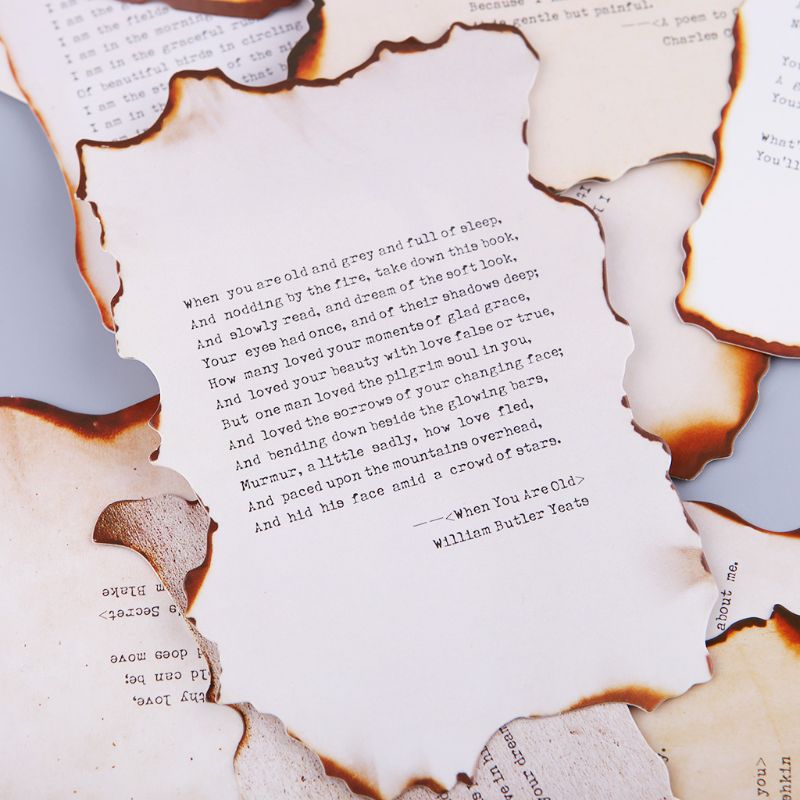 I am the fields
I am in the morning
I am in the graceful
Of beautiful birds in circling
I am the
I am in the
Because I
is gentle but painful.
——<A poem to
Charles
You
A
You
What'
You'll
When you are old and grey and full of sleep,
And nodding by the fire, take down this book,
And slowly read, and dream of the soft look,
Your eyes had once, and of their shadows deep;
How many loved your moments of glad grace,
And loved your beauty with love false or true,
But one man loved the pilgrim soul in you,
And loved the sorrows of your changing face;
And bending down beside the glowing bars,
Murmur, a little sadly, how love fled,
And paced upon the mountains overhead,
And hid his face amid a crowd of stars.
——<When You Are Old>
William Butler Yeats
thy love,
can be;
does move
Secret>
Blake
about me.
your
you>